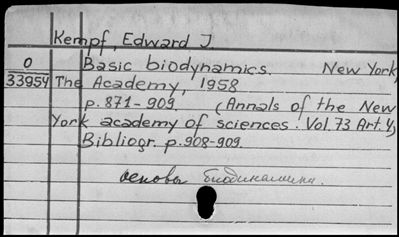 Kempf, Edward J.
O Basic biodynamics. New York,
33954 The Academy, 1958
p. 871-909 (Annals of the New
York academy of sciences. Vol. 73 Art. 4)
Bibliogr. p. 908-909.
основы биодинамики.